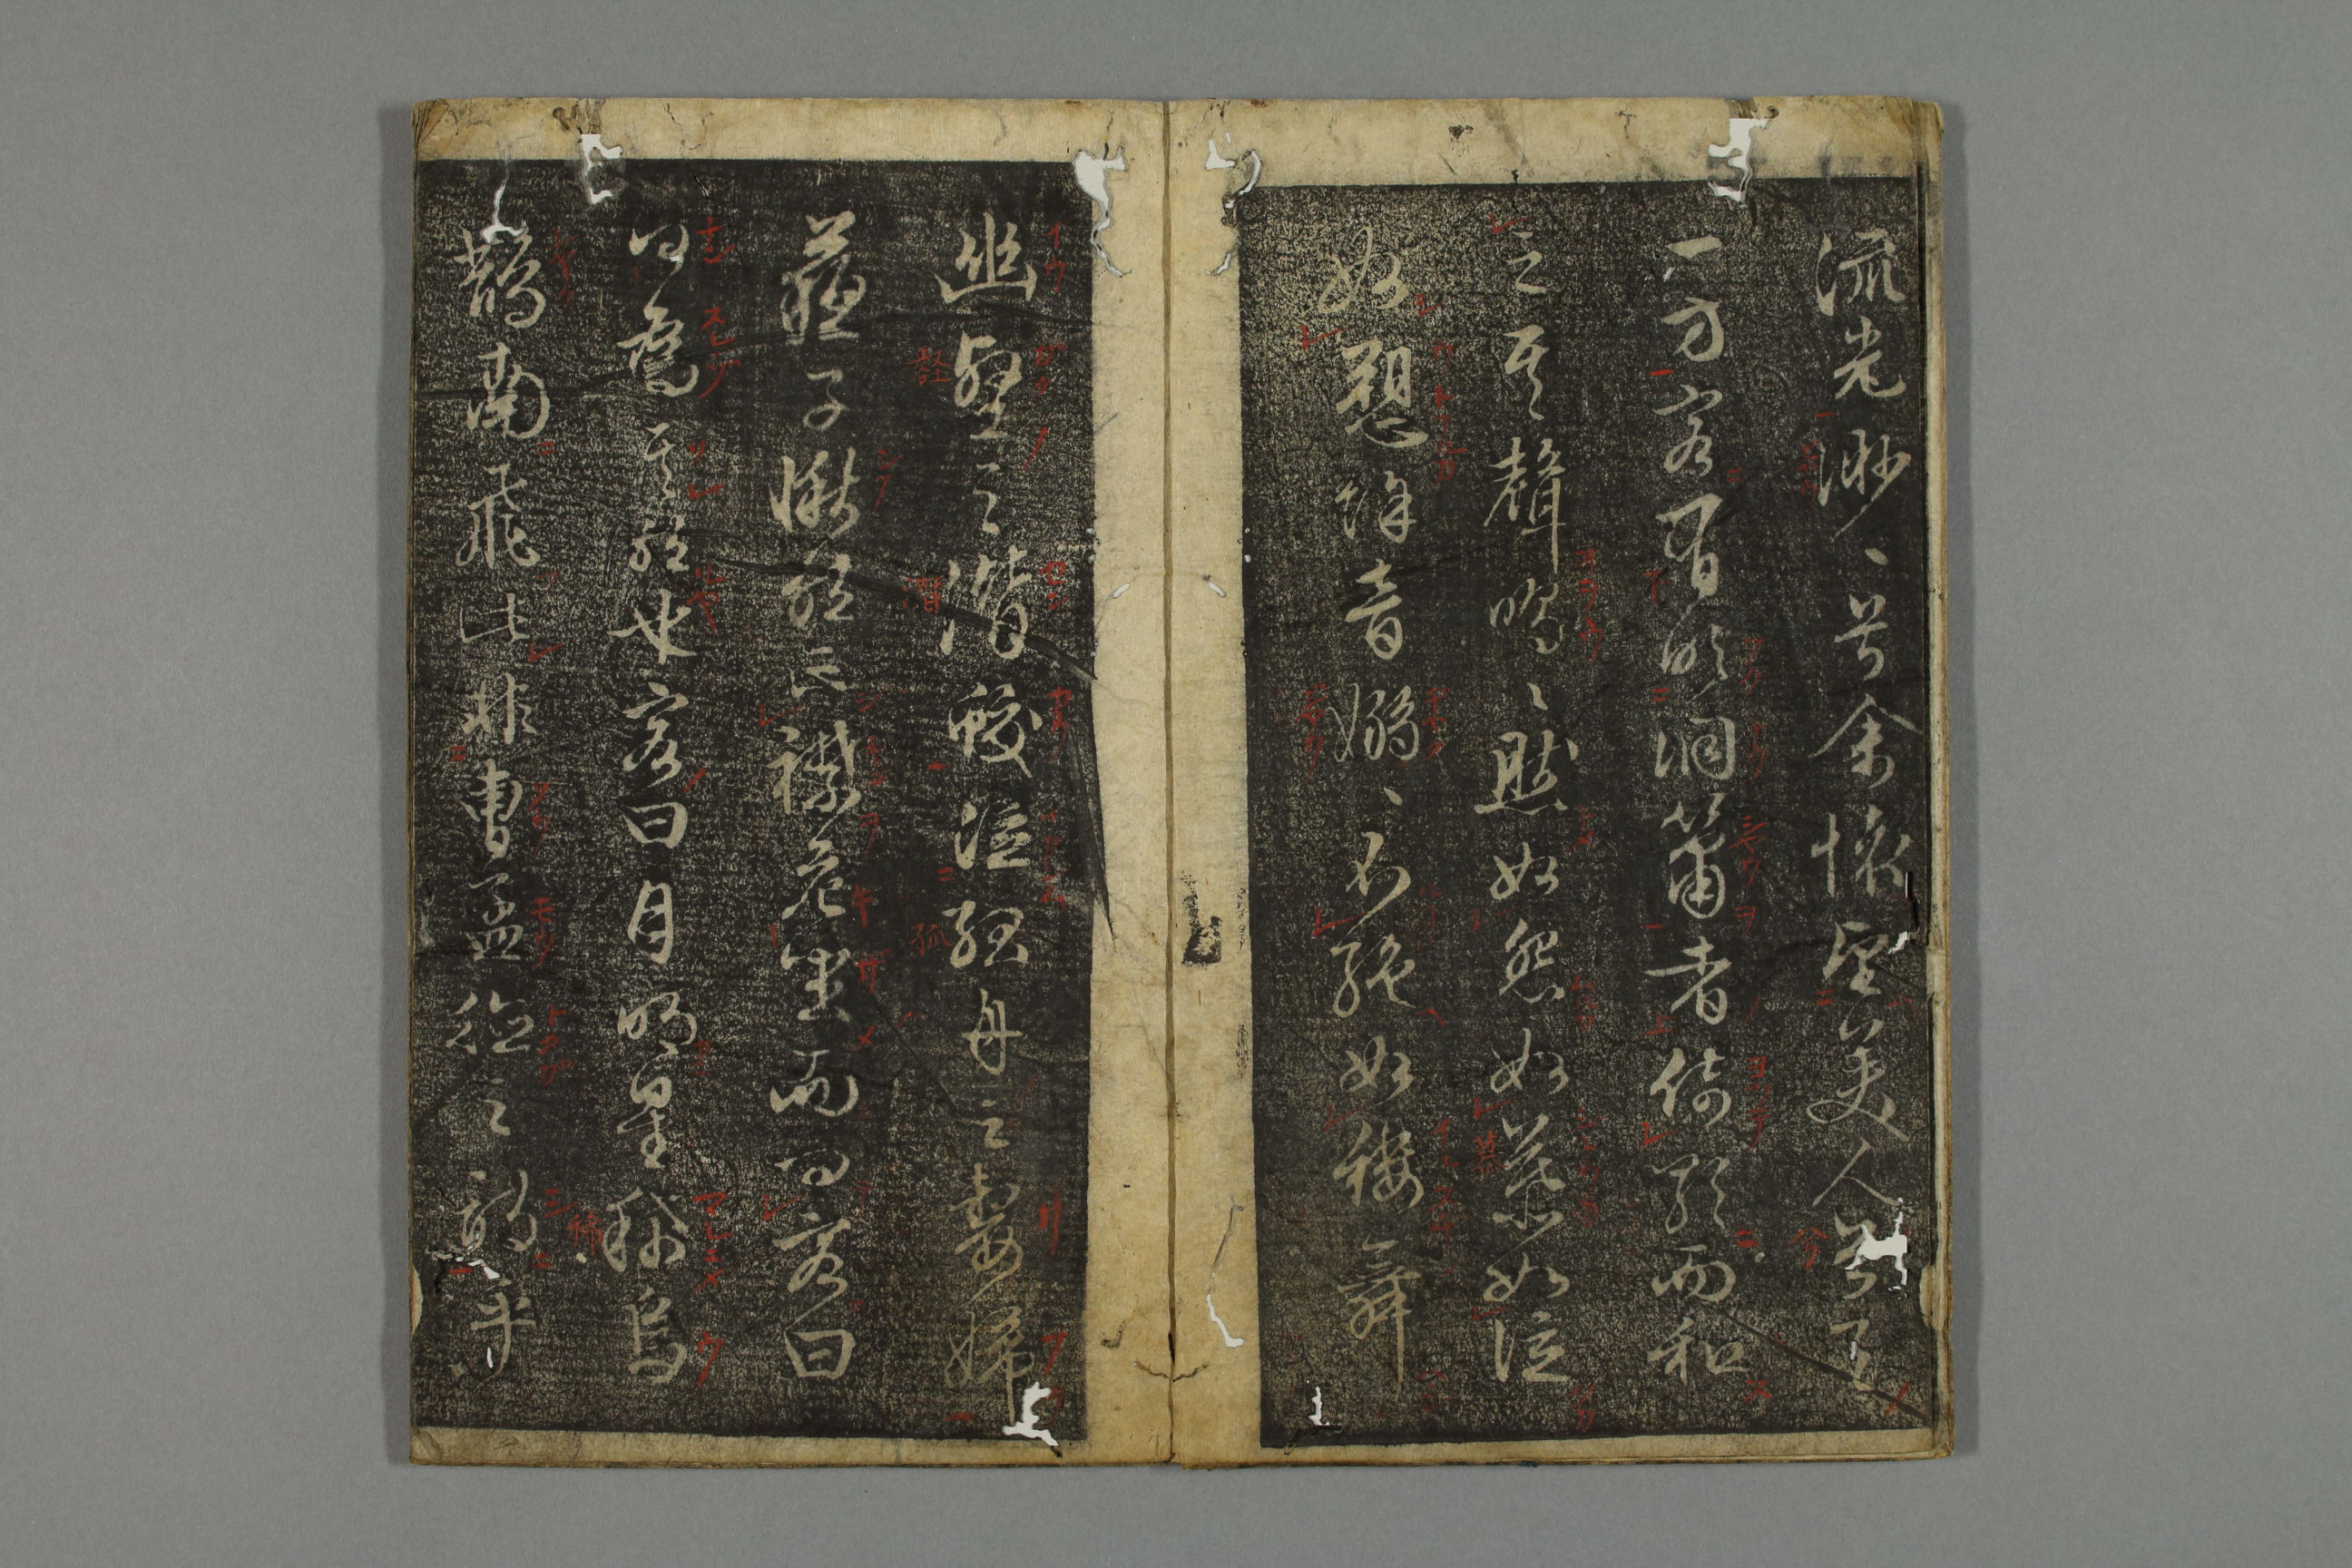 流光渺〻兮余懷望美人兮天
一方客有吹洞簫者倚歌而和
之其聲嗚〻然如怨如慕如泣
如愬餘音嫋〻不絕如縷舞
幽壑之潛蛟泣孤舟之嫠婦
蘇子愀然正襟危坐而問客曰
何為其然也客曰月明星稀烏
鵲南飛此非曹孟德之詩乎